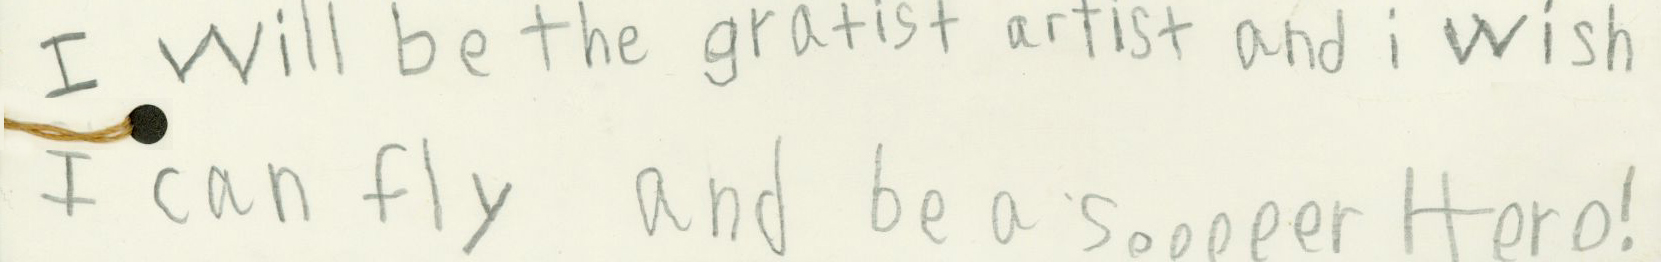 I will be the gratist artist and i wish
I can fly and be a soooper Hero!